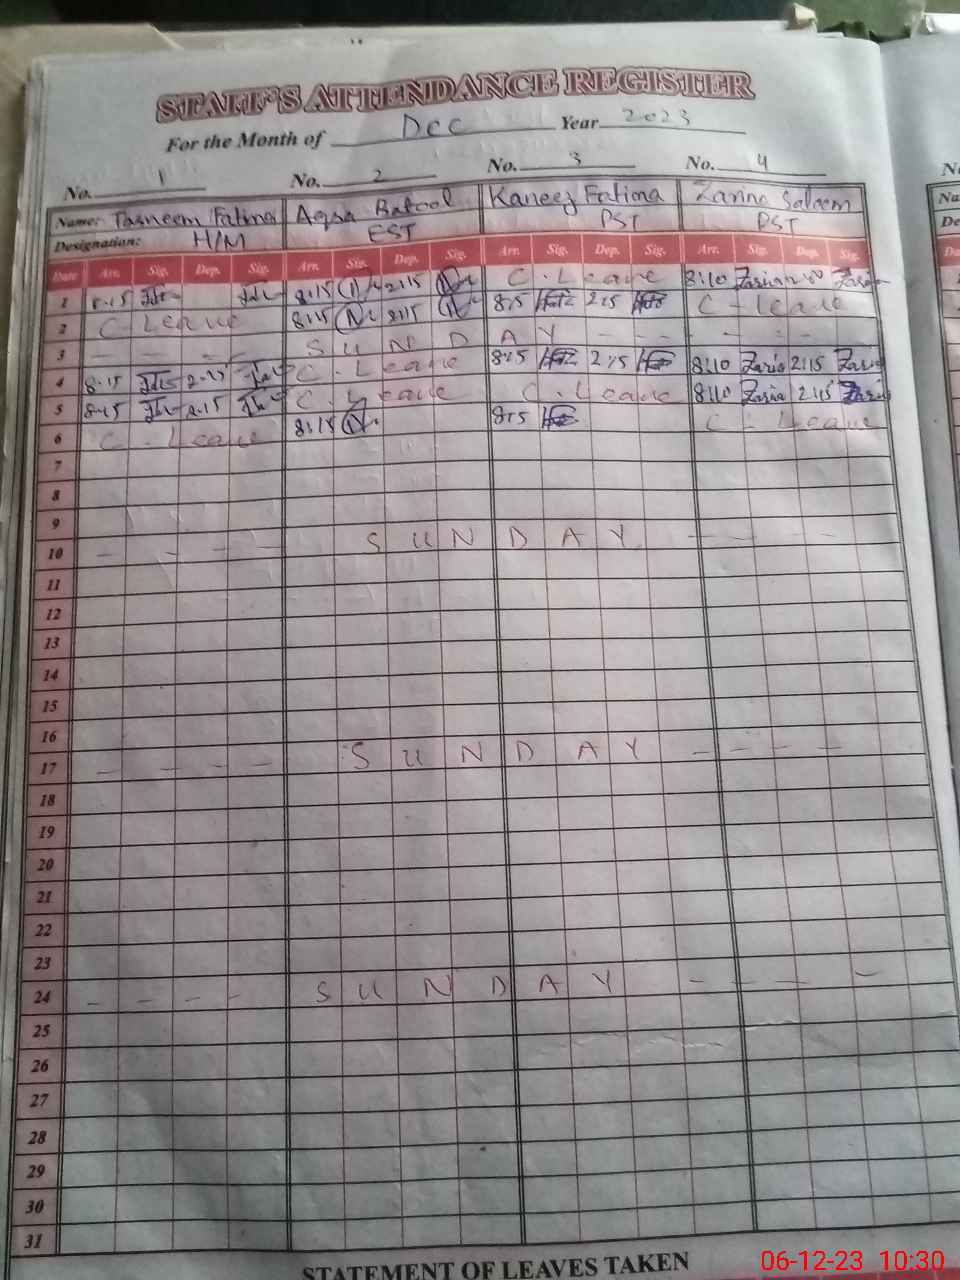 STAFF'S ATTENDANCE REGISTER
For the Month of Dec Year 2023
No. 1 No. 2 No. 3 No. 4
Name: Tasneem Fatima Aqsa Batool Kaneez Fatima Zarina Saleem
Designation: H/M EST PST PST
Date Arr. Sig. Dep. Sig. Arr. Sig. Dep. Sig. Arr. Sig. Dep. Sig. Arr. Sig. Dep. Sig.
1 8.15 8:15 2:15 C. Leave 8:10
2 C Leave 8:15 2:15 8:15 2:15 C - Leave
3 - - - - SUNDAY - - - - - -
4 8.15 2.15 C. Leave 8:15 2:15 8:10 Zaria 2:15 Zaria
5 8.15 2.15 C. Leave C. Leave 8:10 Zaria 2:15 Zaria
6 C - Leave 8:15 8:15 C - Leave
7
8
9
10 - - - - SUNDAY - - - -
11
12
13
14
15
16
17 - - - - SUNDAY - - - - -
18
19
20
21
22
23
24 - - - - SUNDAY - - - -
25
26
27
28
29
30
31
STATEMENT OF LEAVES TAKEN
06-12-23 10:30